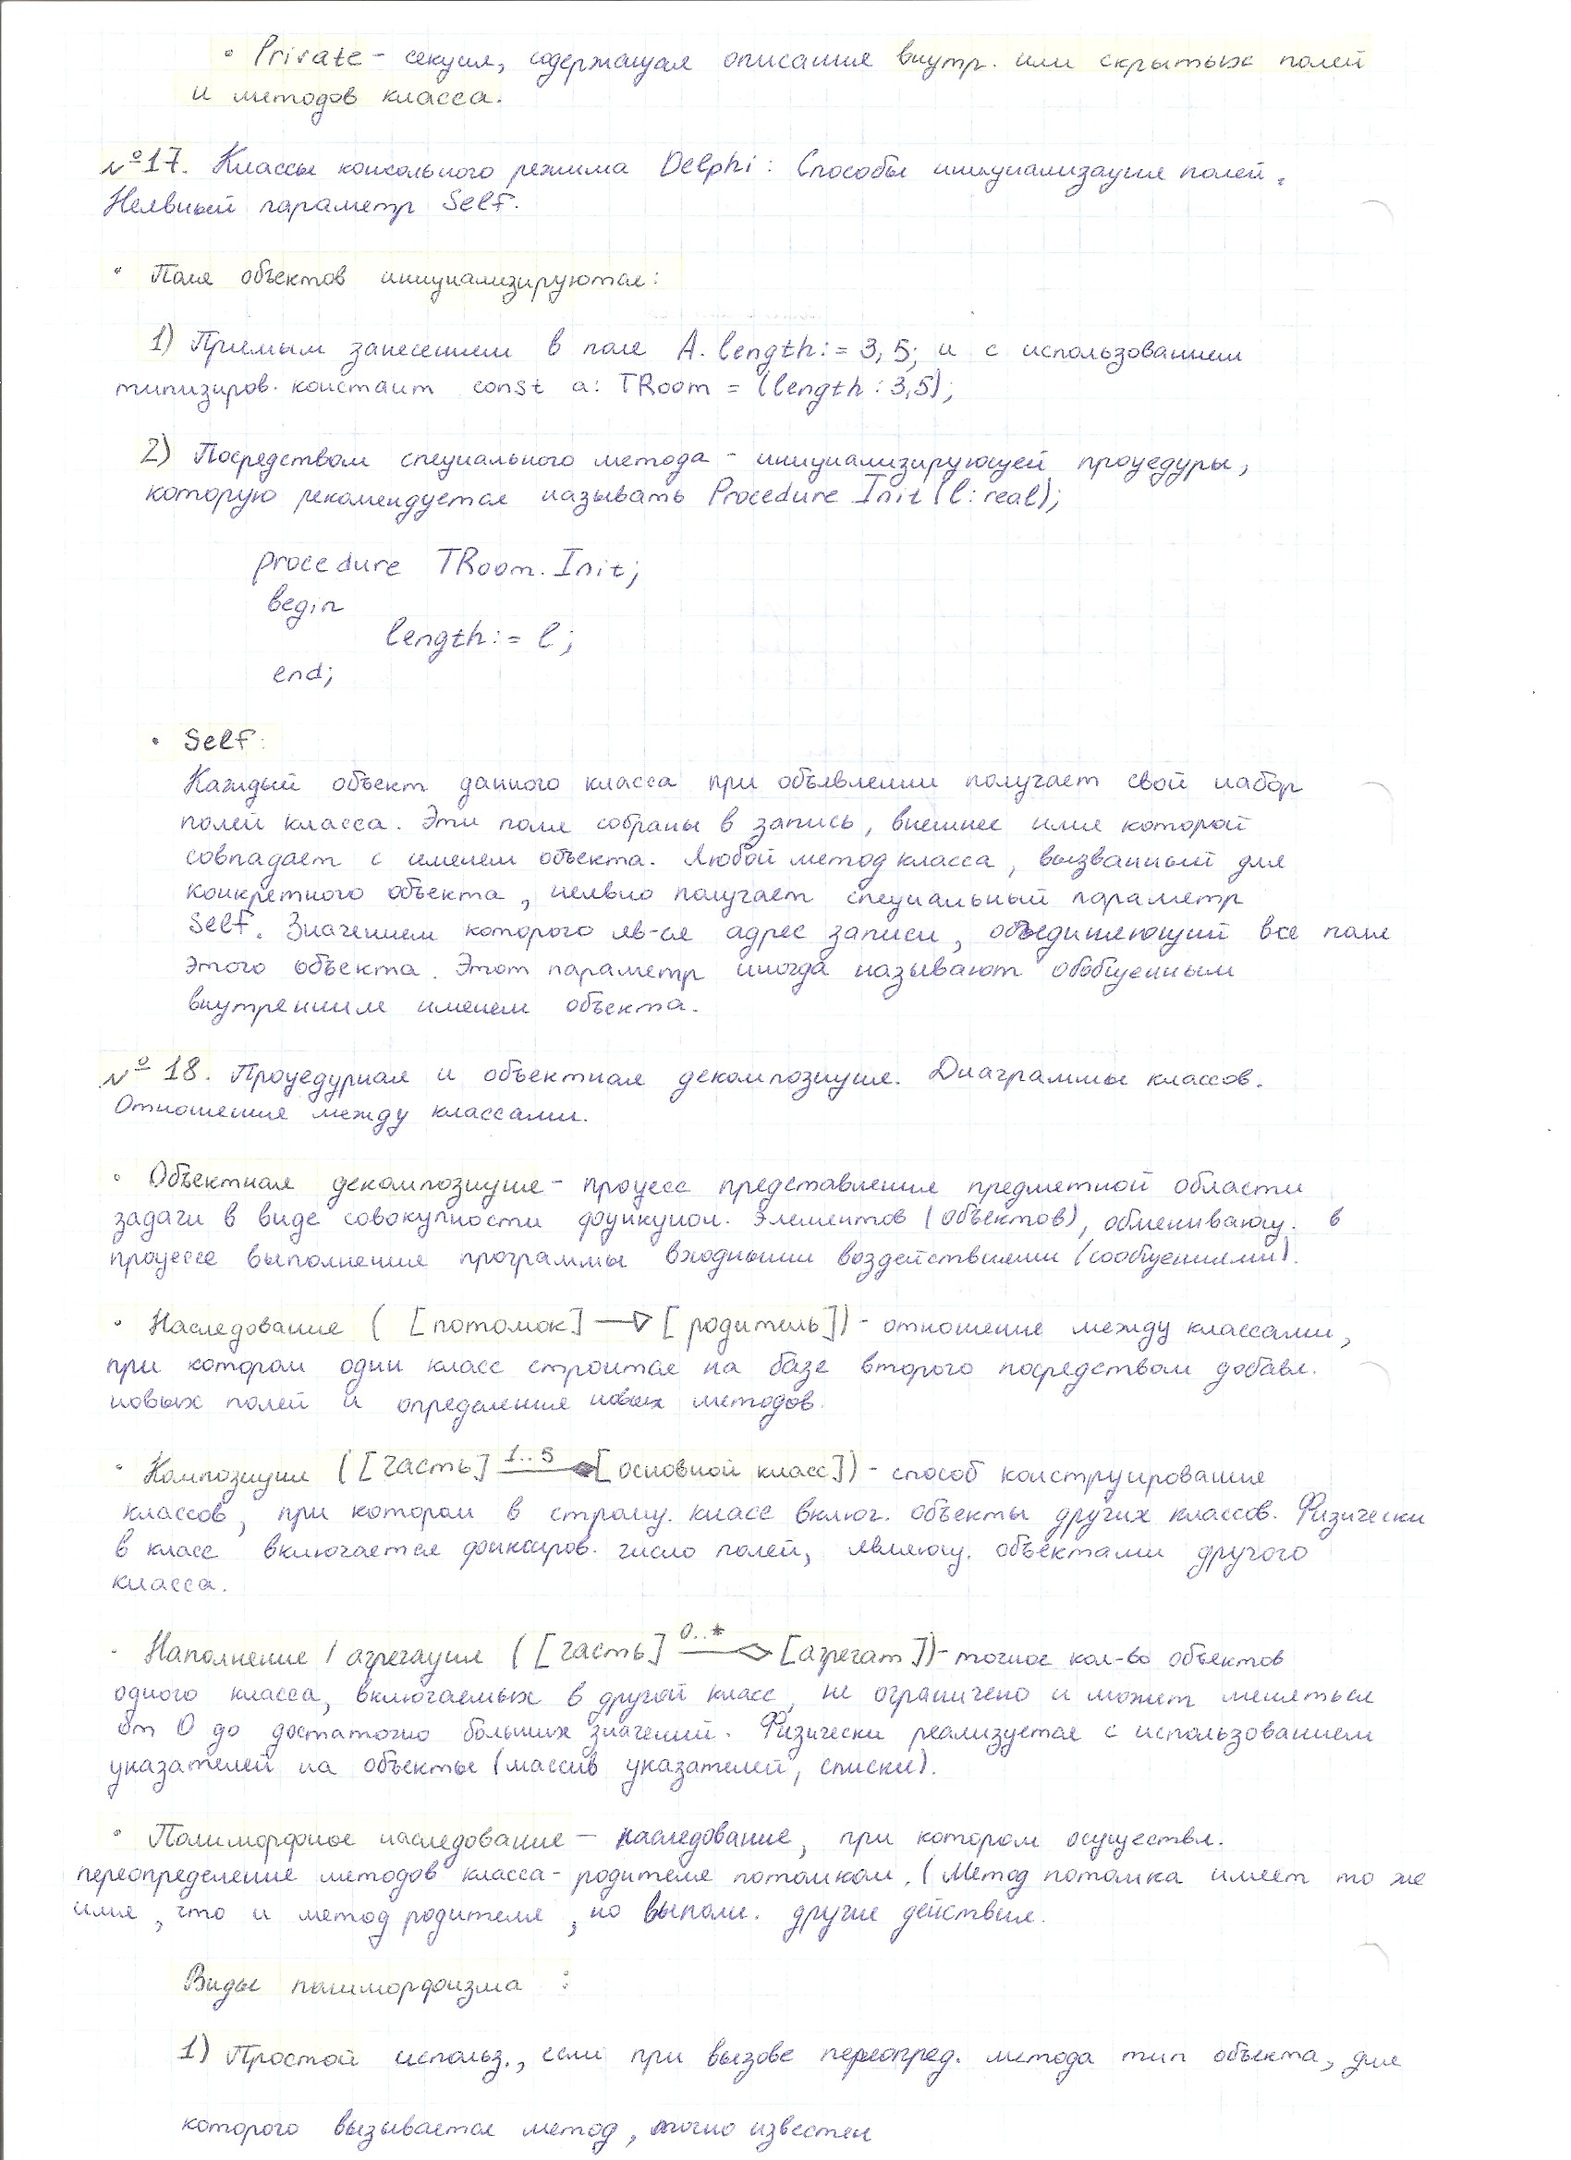 • Private - секция, содержащая описания внутр. или скрытых полей
и методов класса.
№17. Классы консольного режима Delphi: Способы инициализация полей.
Неявный параметр Self.
• Поля объектов инициализируются:
1) Прямым занесением в поле A.length:= 3,5; и с использованием
типизиров. констант const a: TRoom = (length: 3,5);
2) Посредством специального метода - инициализирующей процедуры,
которую рекомендуется называть Procedure Init (l: real);
procedure TRoom.Init;
begin
length:= l;
end;
• Self:
Каждый объект данного класса при объявлении получает свой набор
полей класса. Эти поля собраны в запись, внешнее имя которой
совпадает с именем объекта. Любой метод класса, вызванный для
конкретного объекта, неявно получает специальный параметр
Self. Значением которого яв-ся адрес записи, объединяющий все поля
этого объекта. Этот параметр иногда называют обобщенным
внутренним именем объекта.
№ 18. Процедурная и объектная декомпозиция. Диаграммы классов.
Отношения между классами.
• Объектная декомпозиция - процесс представления предметной области
задачи в виде совокупности функцион. элементов (объектов), обменивающ. в
процессе выполнения программы входными воздействиями (сообщениями).
• Наследование ( [потомок] —▷ [родитель]) - отношение между классами,
при котором один класс строится на базе второго посредством добавл.
новых полей и определения новых методов.
• Композиция ([часть] 1..5 —◆ [основной класс]) - способ конструирования
классов, при котором в строящ. класс включ. объекты других классов. Физически
в класс включается фиксиров. число полей, являющ. объектами другого
класса.
• Наполнение / агрегация ([часть] 0..* —◇ [агрегат]) - точное кол-во объектов
одного класса, включаемых в другой класс, не ограничено и может меняться
от 0 до достаточно больших значений. Физически реализуется с использованием
указателей на объекты (массив указателей, списки).
• Полиморфное наследование — наследование, при котором осуществл.
переопределение методов класса-родителя потомком. (Метод потомка имеет то же
имя, что и метод родителя, но выполн. другие действия.
Виды полиморфизма :
1) Простой использ., если при вызове переопред. метода тип объекта, для
которого вызывается метод, точно известен